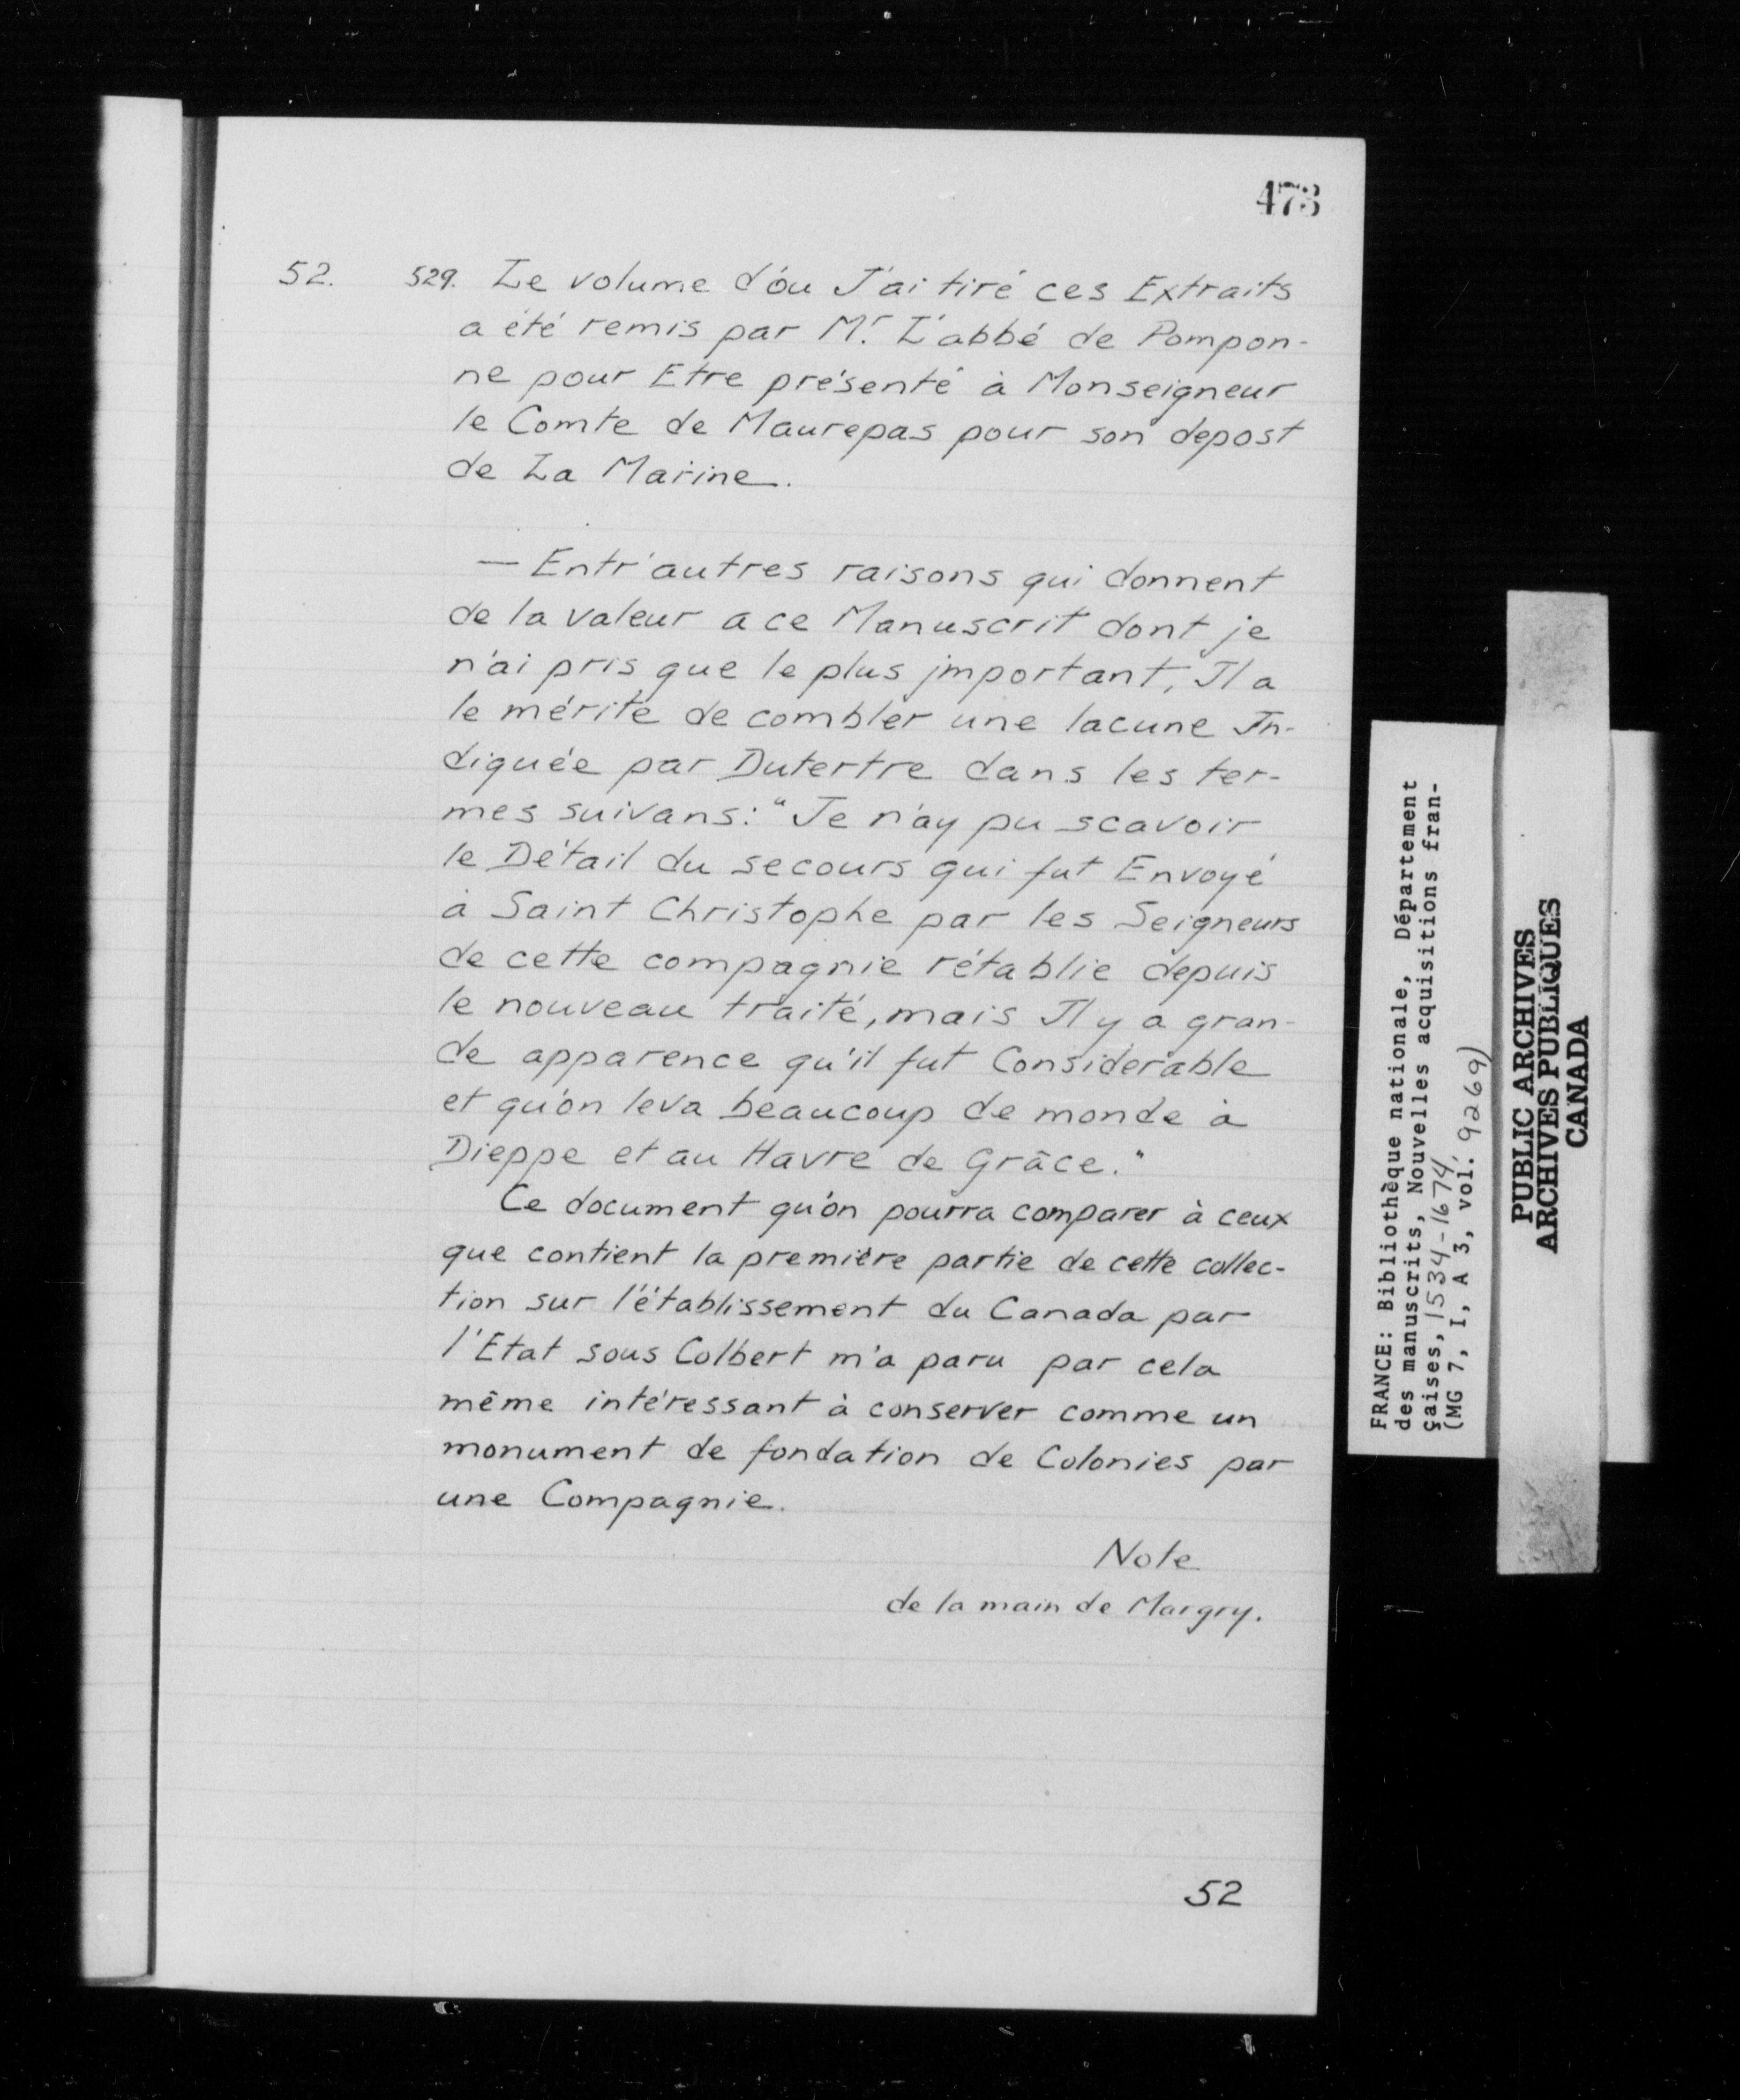 473
52. 529. Le volume d'òu J'ai tiré ces Extraits
a été remis par Mr. L'abbé de Pompon-
ne pour Etre présenté à Monseigneur
le Comte de Maurepas pour son depost
de La Marine.
— Entr'autres raisons qui donnent
de la valeur a ce Manuscrit dont je
n'ai pris que le plus jmportant, Jl a
le mérite de combler une lacune Jn-
diquée par Dutertre dans les ter-
mes suivans: "Je n'ay pu scavoir
le Détail du secours qui fut Envoyé
à Saint Christophe par les Seigneurs
de cette compagnie rétablie depuis
le nouveau traité, mais Jl y a gran-
de apparence qu'il fut Considerable
et qu'on leva beaucoup de monde à
Dieppe et au Havre de Grâce."
Ce document qu'on pourra comparer à ceux
que contient la première partie de cette collec-
tion sur l'établissement du Canada par
l'Etat sous Colbert m'a paru par cela
même intéressant à conserver comme un
monument de fondation de Colonies par
une Compagnie.
Note
de la main de Margry.
52
FRANCE: Bibliothèque nationale, Département
des manuscrits, Nouvelles acquisitions fran-
çaises, 1534-1674,
(MG 7, I, A 3, vol. 9269)
PUBLIC ARCHIVES
ARCHIVES PUBLIQUES
CANADA